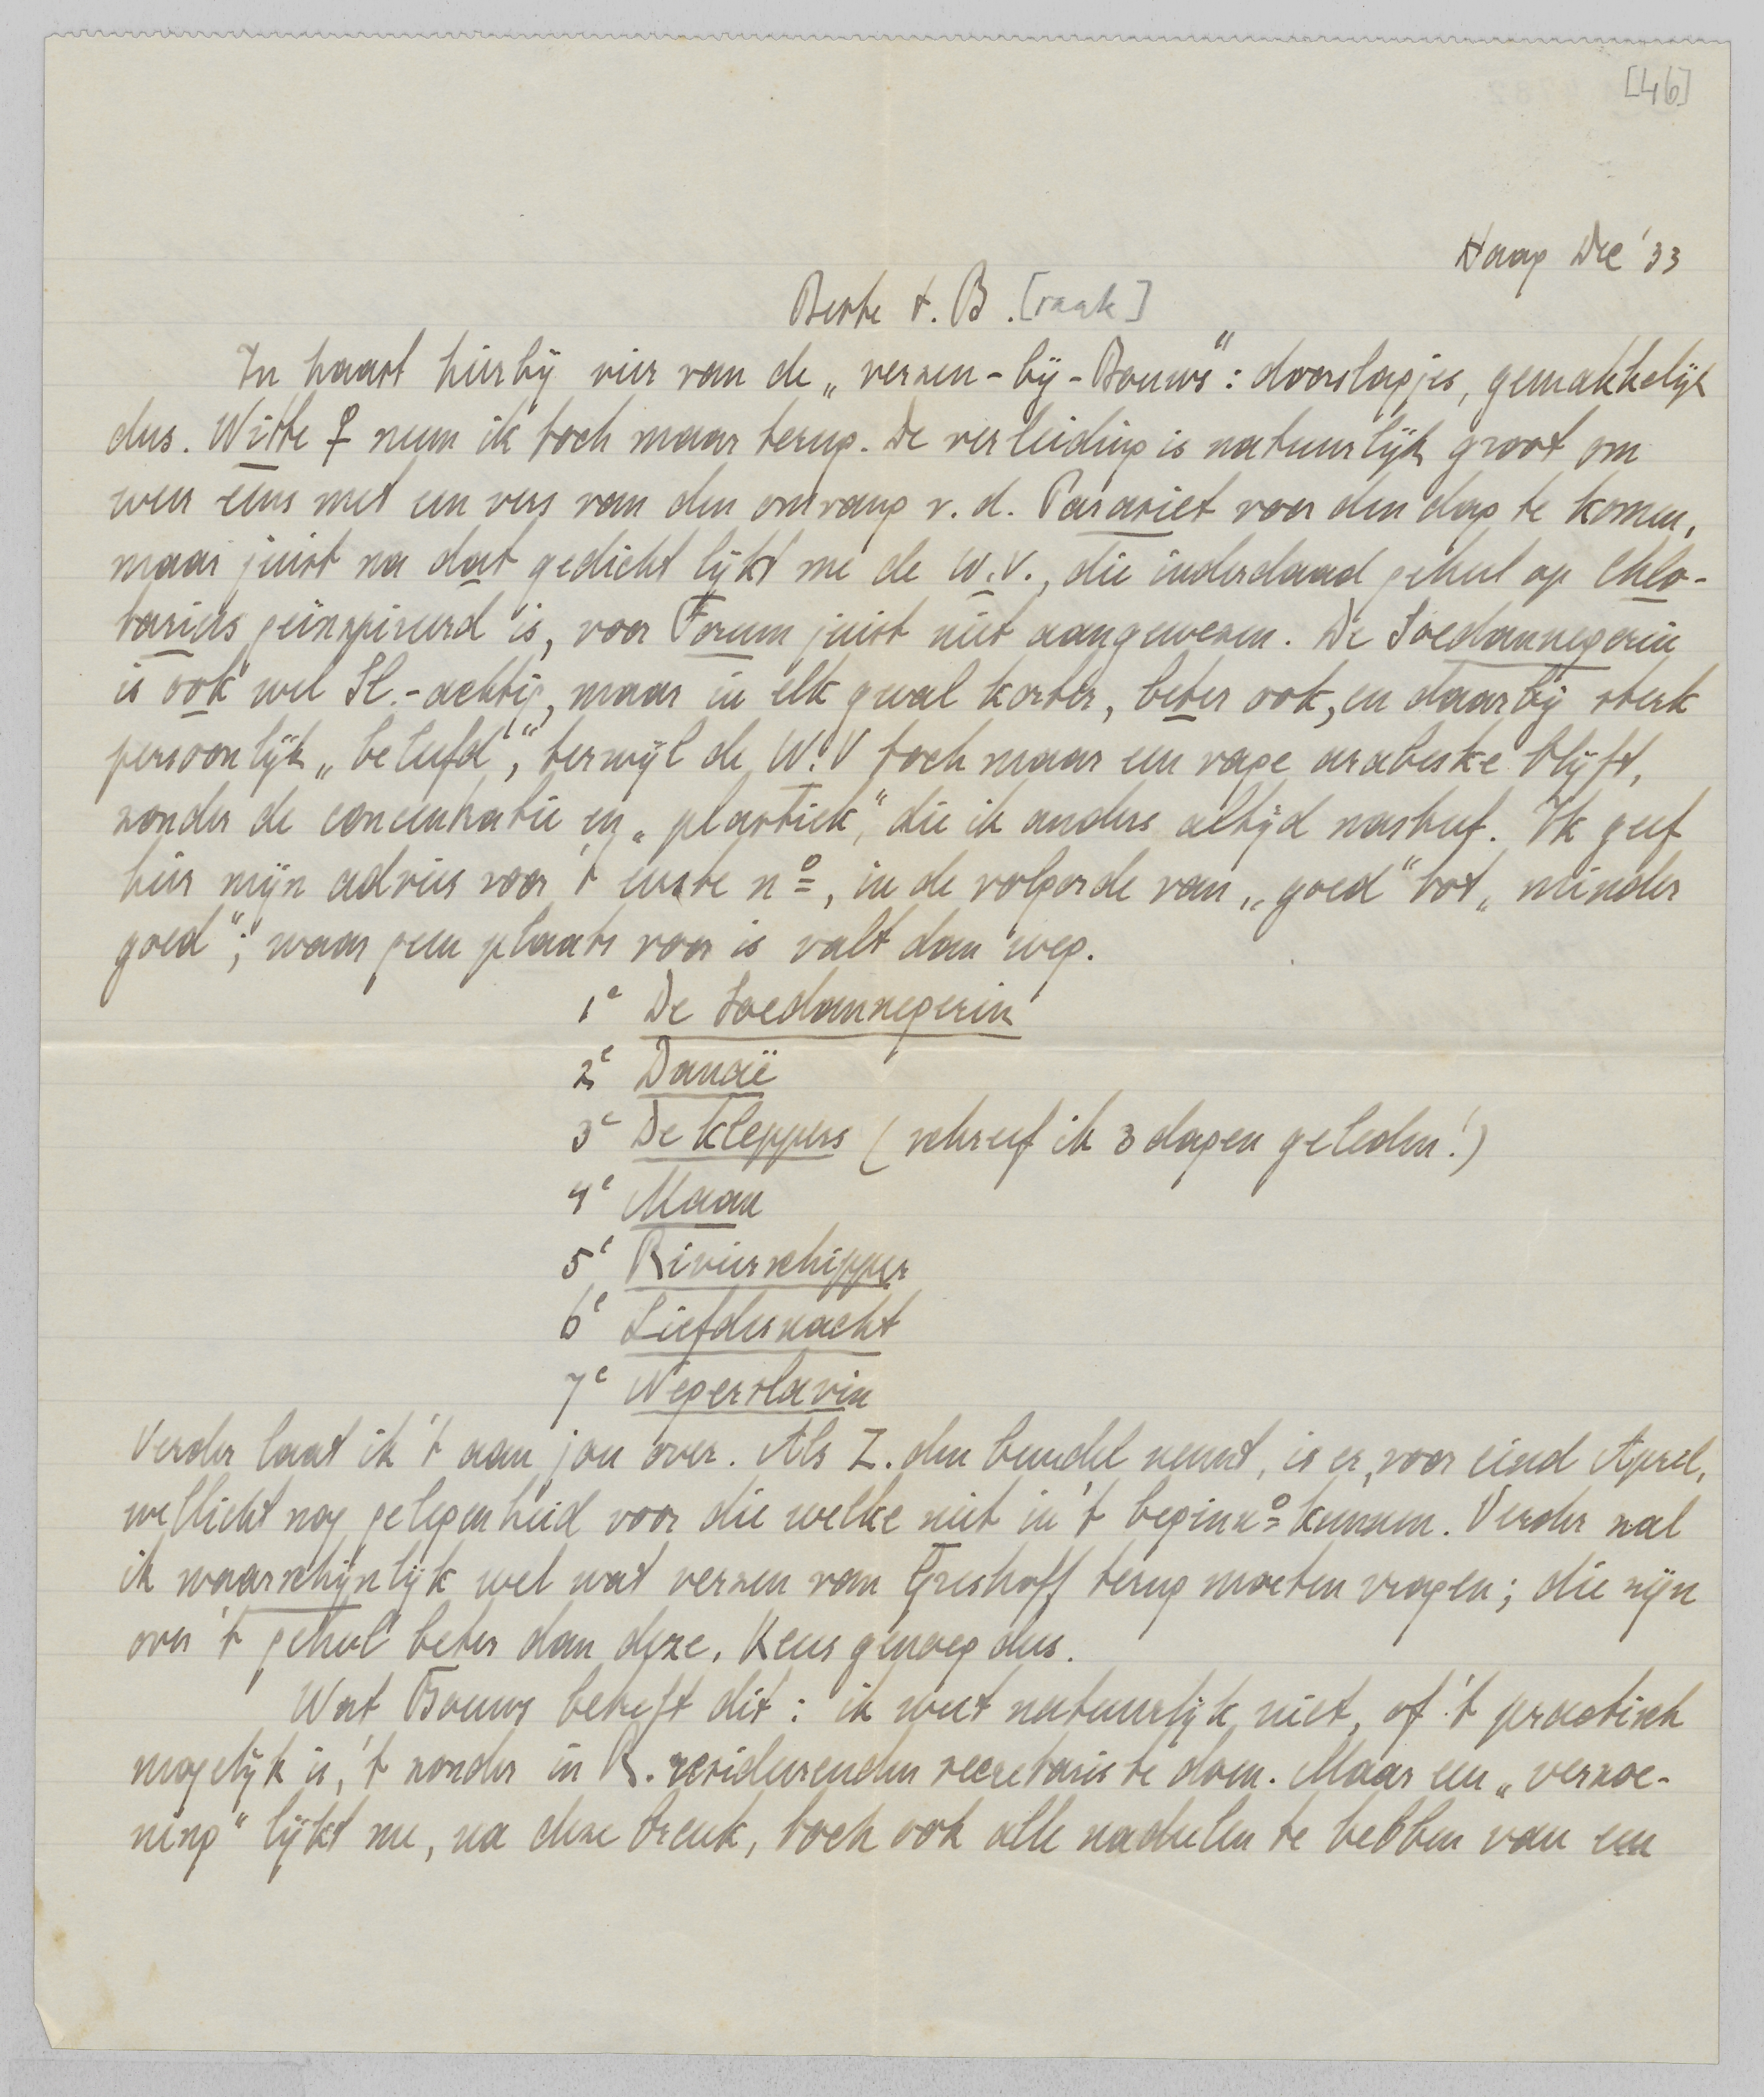 [46]
Haag Dec '33
Beste t. B. [raak]
In haast hierbij vier van de „verzen-bij-Bouws": doorslagjes, gemakkelijk
dus. Witte ♀ neem ik toch maar terug. De verleiding is natuurlijk groot om
weer eens met een vers van den omvang v. d. Parasiet voor den dag te komen,
maar juist na dat gedicht lijkt me de W.V., die inderdaad geheel op Chlo-
tarius geïnspireerd is, voor Forum juist niet aangewezen. De Soedannegerin
is ook wel Sl.-achtig, maar in elk geval korter, beter ook, en daarbij sterk
persoonlijk „beleefd", terwijl de W.V toch maar een vage arabeske blijft,
zonder de concentratie en „plastiek", die ik anders altijd nastreef. Ik geef
hier mijn advies voor 't eerste nº, in de volgorde van „goed" tot „minder
goed"; waar geen plaats voor is valt dan weg.
1e De Soedannegerin
2e Danaë
3e De kleppers (schreef ik 3 dagen geleden!)
4e Maan
5e Rivierschipper
6e Liefdesnacht
7e Negerslavin
Verder laat ik 't aan jou over. Als Z. den bundel neemt, is er, voor eind April,
wellicht nog gelegenheid voor die welke niet in 't beginnº kunnen. Verder zal
ik waarschijnlijk wel wat verzen van Greshoff terug moeten vragen; die zijn
over 't geheel beter dan deze. Keus genoeg dus.
Wat Bouws betreft dit: ik weet natuurlijk niet, of 't practisch
mogelijk is, 't zonder in R. resideerenden secretaris te doen. Maar een „verzoe-
ning" lijkt me, na deze breuk, toch ook alle nadeelen te hebben van een